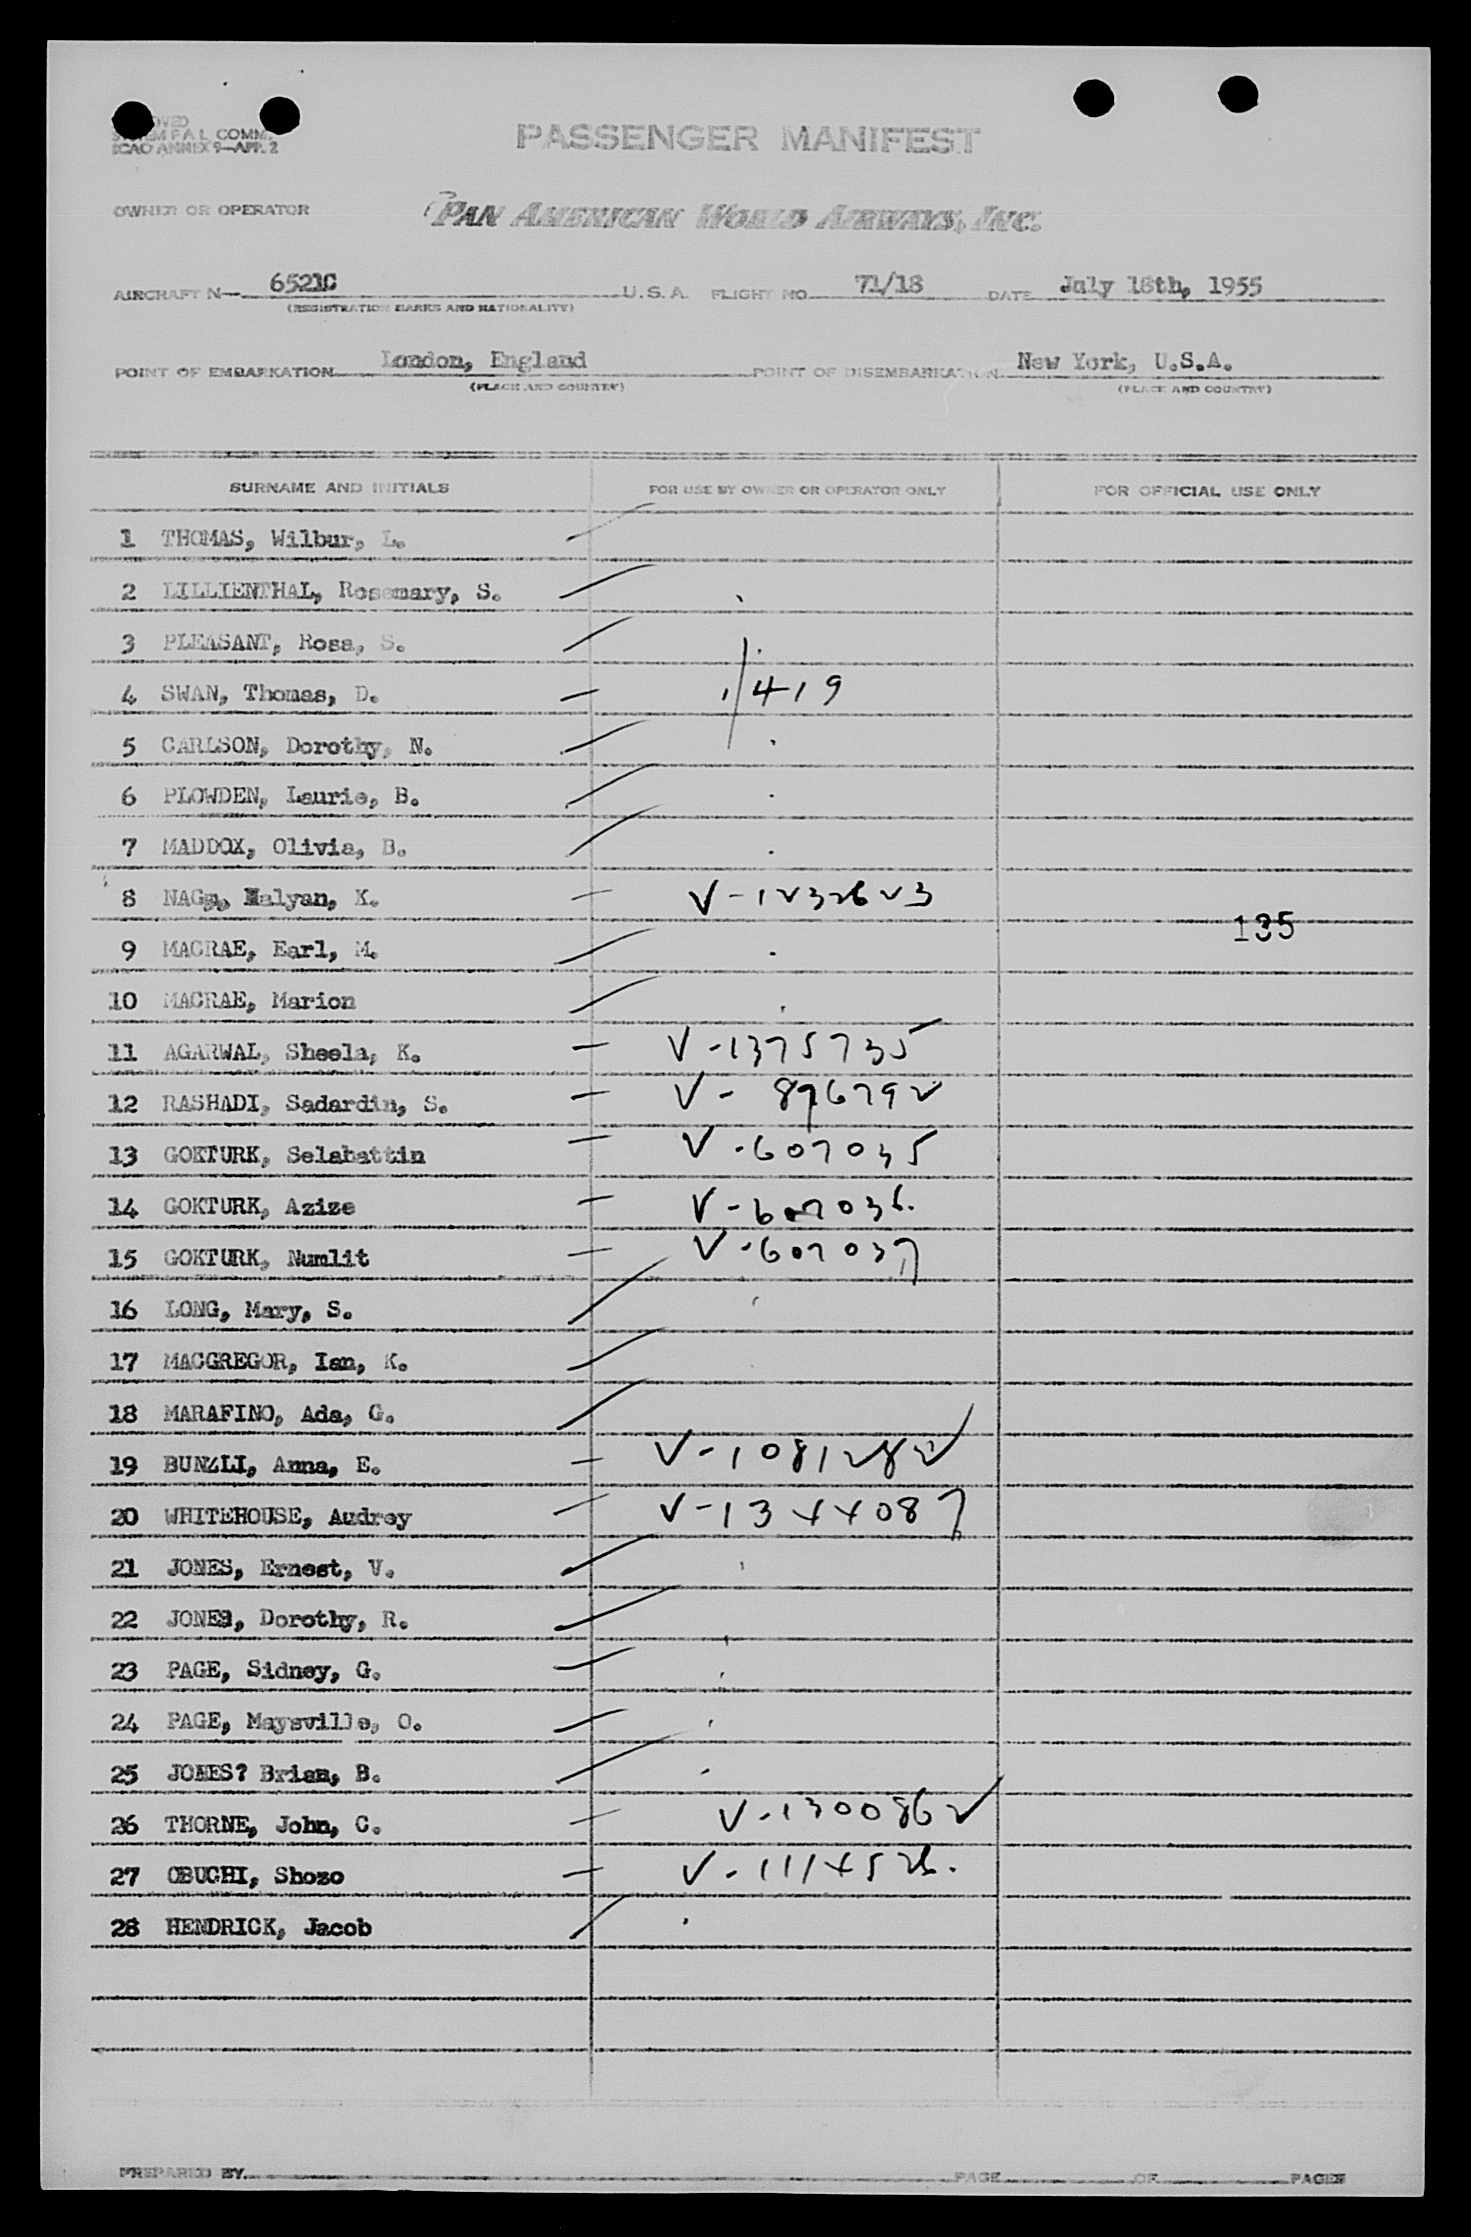 PASSENGER MANIFEST
SYSTEM F.A.L. COMM.
ICAO ANNEX 9—APP. 2
OWNER OR OPERATOR PAN AMERICAN WORLD AIRWAYS, INC.
AIRCRAFT N— 6521C U.S.A. FLIGHT NO. 71/18 DATE July 18th, 1955
(REGISTRATION MARKS AND NATIONALITY)
POINT OF EMBARKATION London, England POINT OF DISEMBARKATION New York, U.S.A.
(PLACE AND COUNTRY) (PLACE AND COUNTRY)
SURNAME AND INITIALS FOR USE BY OWNER OR OPERATOR ONLY FOR OFFICIAL USE ONLY
1 THOMAS, Wilbur, L.
2 LILLIENTHAL, Rosemary, S.
3 PLEASANT, Rosa, S.
4 SWAN, Thomas, D. 1/419
5 CARLSON, Dorothy, N.
6 PLOWDEN, Laurie, B.
7 MADDOX, Olivia, B.
8 NAG, Kalyan, K. V-1232623
135
9 MACRAE, Earl, M.
10 MACRAE, Marion
11 AGARWAL, Sheela, K. V-1375735
12 RASHADI, Sadardin, S. V-896792
13 GOKTURK, Selahattin V-607035
14 GOKTURK, Azize V-607036.
15 GOKTURK, Numlit V-607037
16 LONG, Mary, S.
17 MACGREGOR, Ian, K.
18 MARAFINO, Ada, G.
19 BUNZLI, Anna, E. V-1081282
20 WHITEHOUSE, Audrey V-1344087
21 JONES, Ernest, V.
22 JONES, Dorothy, R.
23 PAGE, Sidney, G.
24 PAGE, Maysville, O.
25 JONES? Brian, B.
26 THORNE, John, C. V-1300862
27 OBUCHI, Shozo V-1114526.
28 HENDRICK, Jacob
PREPARED BY PAGE OF PAGES